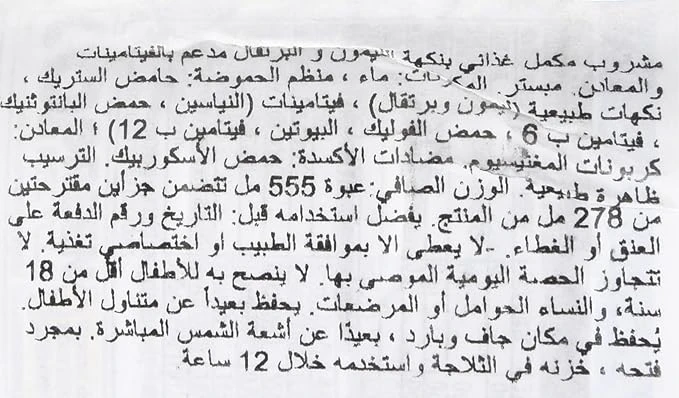 مشروب مكمل غذائي بنكهة الليمون و البرتقال مدعم بالفيتامينات
والمعادن. مبستر. المكونات: ماء ، منظم الحموضة: حامض الستريك ،
نكهات طبيعية (ليمون وبرتقال) ، فيتامينات (النياسين ، حمض البانتوثنيك
، فيتامين ب 6 ، حمض الفوليك ، البيوتين ، فيتامين ب 12) ؛ المعادن:
كربونات المغنيسيوم. مضادات الأكسدة: حمض الأسكوربيك. الترسيب
ظاهرة طبيعية. الوزن الصافي: عبوة 555 مل تتضمن جزأين مقترحتين
من 278 مل من المنتج. يفضل استخدامه قبل: التاريخ ورقم الدفعة على
العنق أو الغطاء. -لا يعطى الا بموافقة الطبيب او اختصاصي تغذية. لا
تتجاوز الحصة اليومية الموصى بها. لا ينصح به للأطفال أقل من 18
سنة، والنساء الحوامل أو المرضعات. يحفظ بعيداً عن متناول الأطفال.
يُحفظ في مكان جاف وبارد ، بعيدًا عن أشعة الشمس المباشرة. بمجرد
فتحه ، خزنه في الثلاجة واستخدمه خلال 12 ساعة.